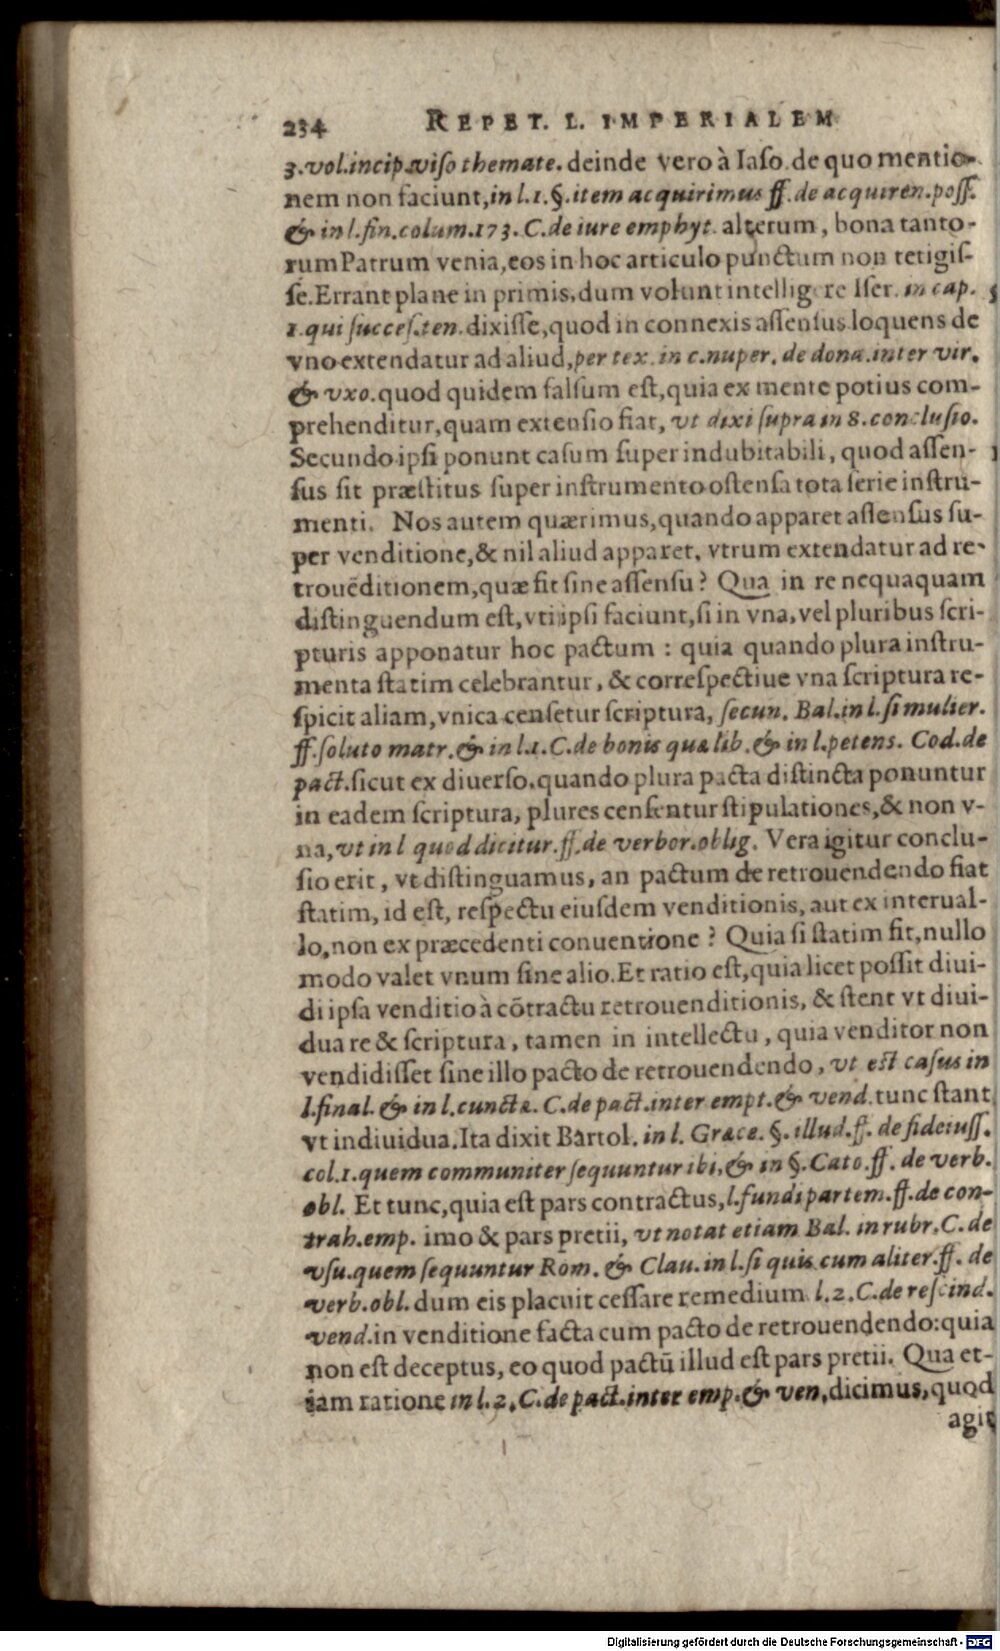 234 REPET. L. IMPERIALEM
3. vol. incip. viſo themate. deinde vero à Iaſo. de quo mentio-
nem non faciunt, in l. 1. §. item acquirimus ff. de acquiren. poſſ.
& in l. fin. colum. 173. C. de iure emphyt. alterum, bona tanto-
rum Patrum venia, eos in hoc articulo punctum non tetigiſ-
ſe. Errant plane in primis, dum volunt intelligere Iſer. in cap.
1. qui ſucceſ. ten. dixiſſe, quod in connexis aſſenſus loquens de
vno extendatur ad aliud, per tex. in c. nuper. de dona. inter vir.
& vxo. quod quidem falſum eſt, quia ex mente potius com-
prehenditur, quam extenſio fiat, vt dixi ſupra in 8. concluſio.
Secundo ipſi ponunt caſum ſuper indubitabili, quod aſſen-
ſus ſit præſtitus ſuper inſtrumento oſtenſa tota ſerie inſtru-
menti. Nos autem quærimus, quando apparet aſſenſus ſu-
per venditione, & nil aliud apparet, vtrum extendatur ad re-
trouẽditionem, quæ fit ſine aſſenſu? Qua in re nequaquam
diſtinguendum eſt, vti ipſi faciunt, ſi in vna, vel pluribus ſcri-
pturis apponatur hoc pactum : quia quando plura inſtru-
menta ſtatim celebrantur, & correſpectiue vna ſcriptura re-
ſpicit aliam, vnica cenſetur ſcriptura, ſecun. Bal. in l. ſi mulier.
ff. ſoluto matr. & in l. 1. C. de bonis quæ lib. & in l. petens. Cod. de
pact. ſicut ex diuerſo, quando plura pacta diſtincta ponuntur
in eadem ſcriptura, plures cenſentur ſtipulationes, & non v-
na, vt in l quod dicitur. ff. de verbor. oblig. Vera igitur conclu-
ſio erit, vt diſtinguamus, an pactum de retrouendendo fiat
ſtatim, id eſt, reſpectu eiuſdem venditionis, aut ex interual-
lo, non ex præcedenti conuentione? Quia ſi ſtatim fit, nullo
modo valet vnum ſine alio. Et ratio eſt, quia licet poſſit diui-
di ipſa venditio à cõtractu retrouenditionis, & ſtent vt diui-
dua re & ſcriptura, tamen in intellectu, quia venditor non
vendidiſſet ſine illo pacto de retrouendendo, vt eſt caſus in
l. final. & in l. cuncta. C. de pact. inter empt. & vend. tunc ſtant
vt indiuidua. Ita dixit Bartol. in l. Græce. §. illud. ff. de fideiuſſ.
col. 1. quem communiter ſequuntur ibi, & in §. Cato. ff. de verb.
obl. Et tunc, quia eſt pars contractus, l. fundi partem. ff. de con-
trah. emp. imo & pars pretii, vt notat etiam Bal. in rubr. C. de
vſu. quem ſequuntur Rom. & Clau. in l. ſi quis cum aliter. ff. de
verb. obl. dum eis placuit ceſſare remedium l. 2. C. de reſcind.
vend. in venditione facta cum pacto de retrouendendo: quia
non eſt deceptus, eo quod pactũ illud eſt pars pretii. Qua et-
iam ratione in l. 2. C. de pact. inter emp. & ven, dicimus, quod
agit
Digitalisierung gefördert durch die Deutsche Forschungsgemeinschaft - DFG